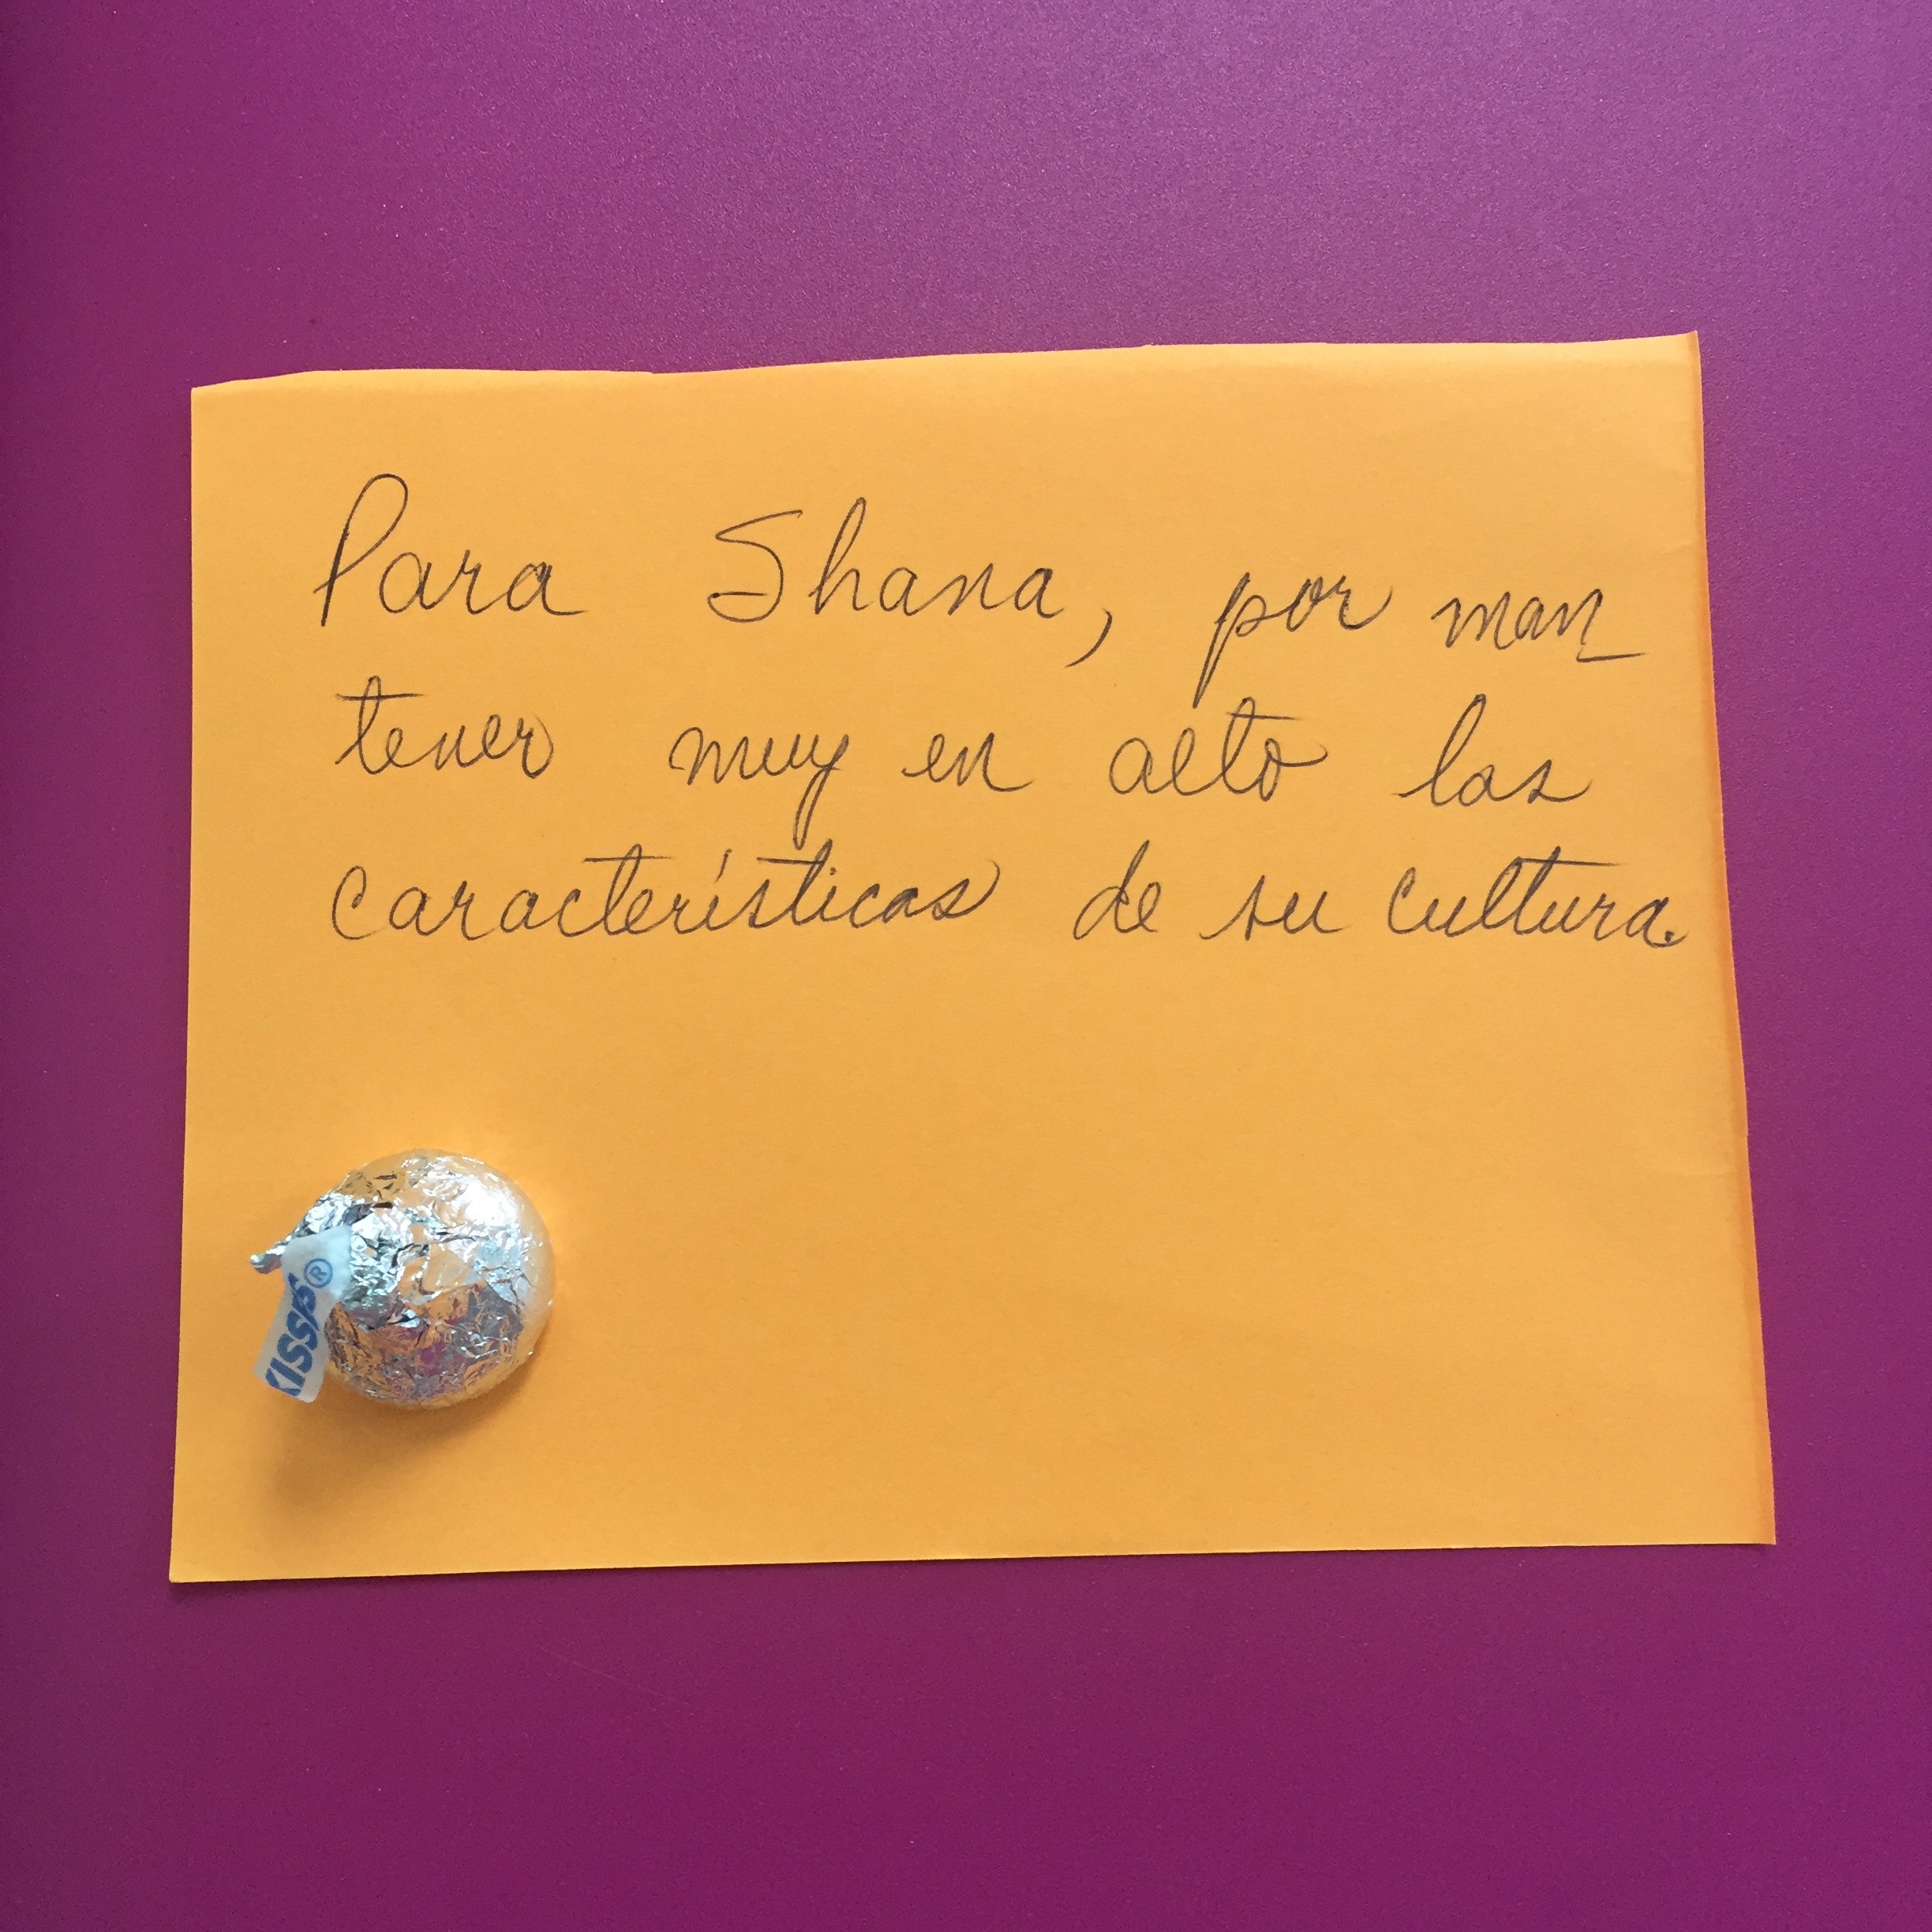 Para Shana, por man_
tener muy en alto las
características de su cultura.
KISSES®